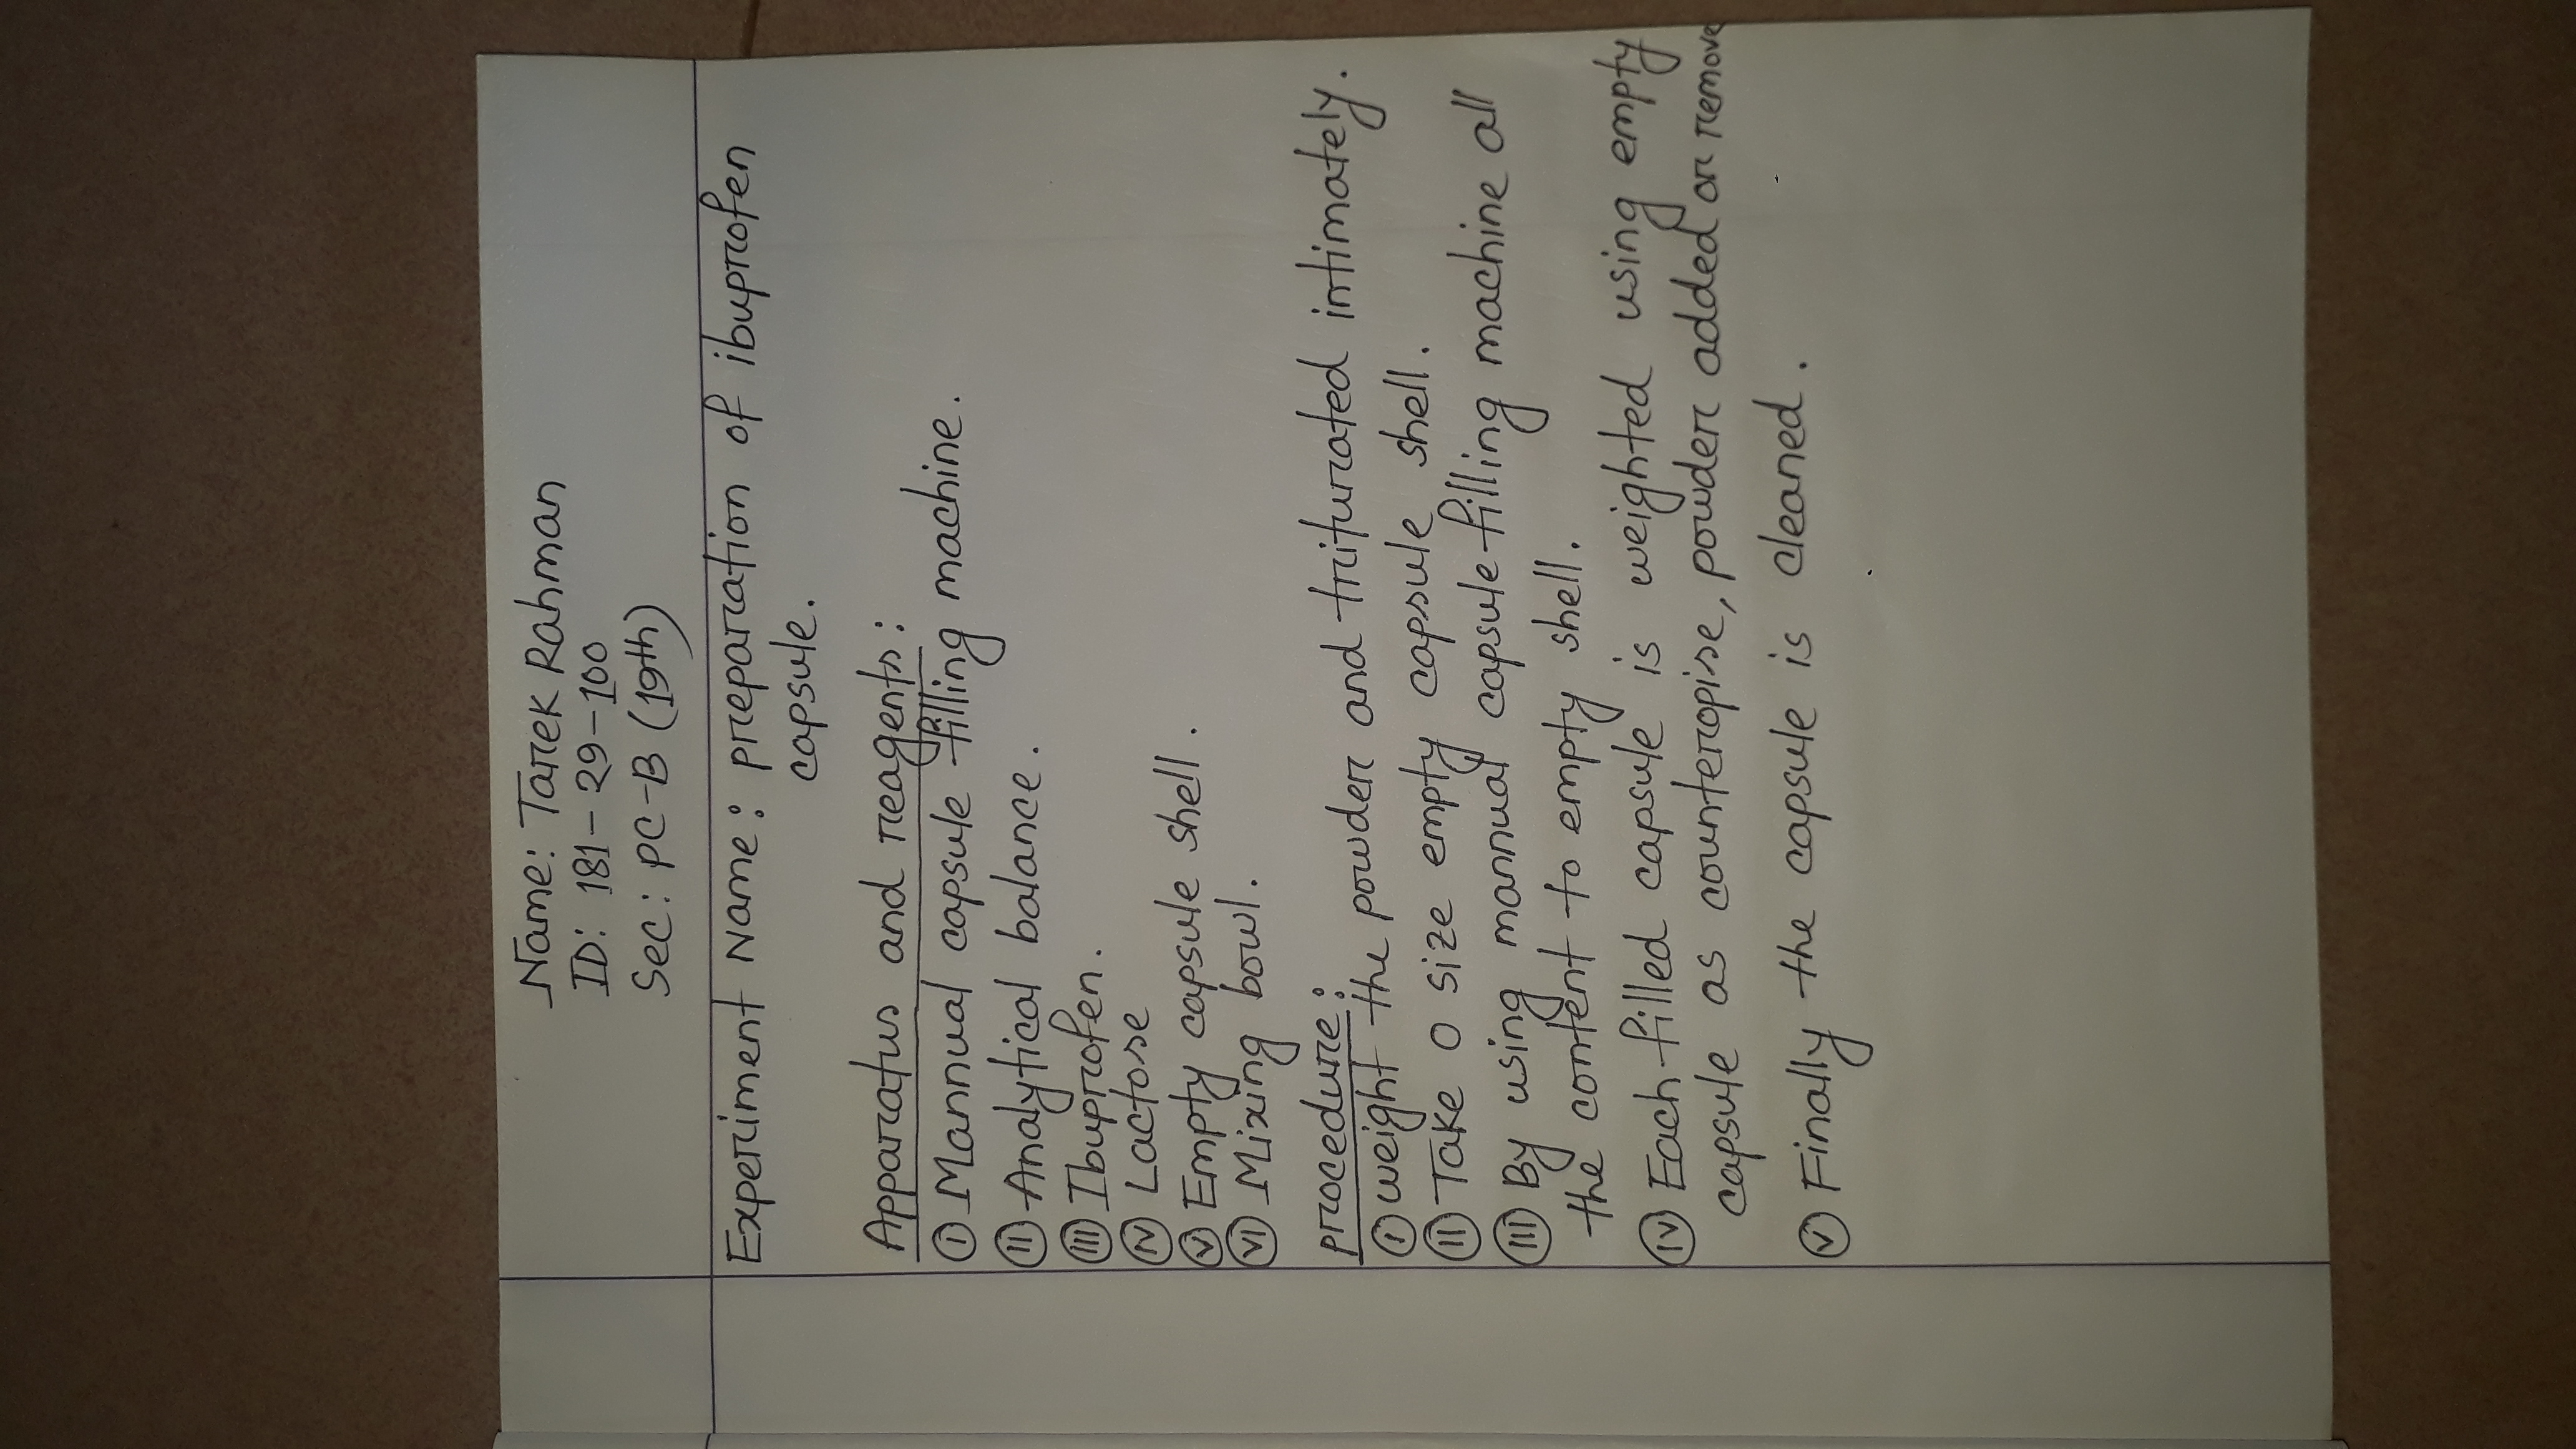 Name: Tarek Rahman
ID: 181-29-100
Sec: PC-B (19th)
Experiment Name: preparation of ibuprofen
capsule.
Apparatus and reagents:
(I) Mannual capsule filling machine.
(II) Analytical balance.
(III) Ibuprofen.
(IV) Lactose
(V) Empty capsule shell.
(VI) Mixing bowl.
procedure:
(I) weight the powder and triturated intimately.
(II) Take 0 size empty capsule shell.
(III) By using mannual capsule filling machine all
the content to empty shell.
(IV) Each filled capsule is weighted using empty
capsule as counteropise, powder added or remove
(V) Finally the capsule is cleaned.